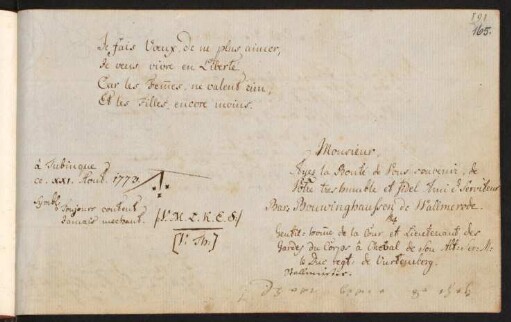 191
165.
Je fais Vœux, de ne plus aimer,
Je veus vivre en Liberté
Car les Fem̃es, ne valent rien,
Et les Filles, encore moins.
à Tubingue
ce. XXI. Aout. 1773.
Symb:
Toujours content
Jamais mechant.
/:V. M. L. K. E. S:/
[V. Th.]
Monsieur,
Ayes la Bonté de Vous souvenir, de
Votre tres humble et fidel Ami & Serviteur
Bar: Bouwinghausen de Wallmerode.
Gentilhom̃e de la Cour et Lieutenant des
Gardes du Corps à Cheval de son Altesse
le Duc regt: de Wurtemberg.